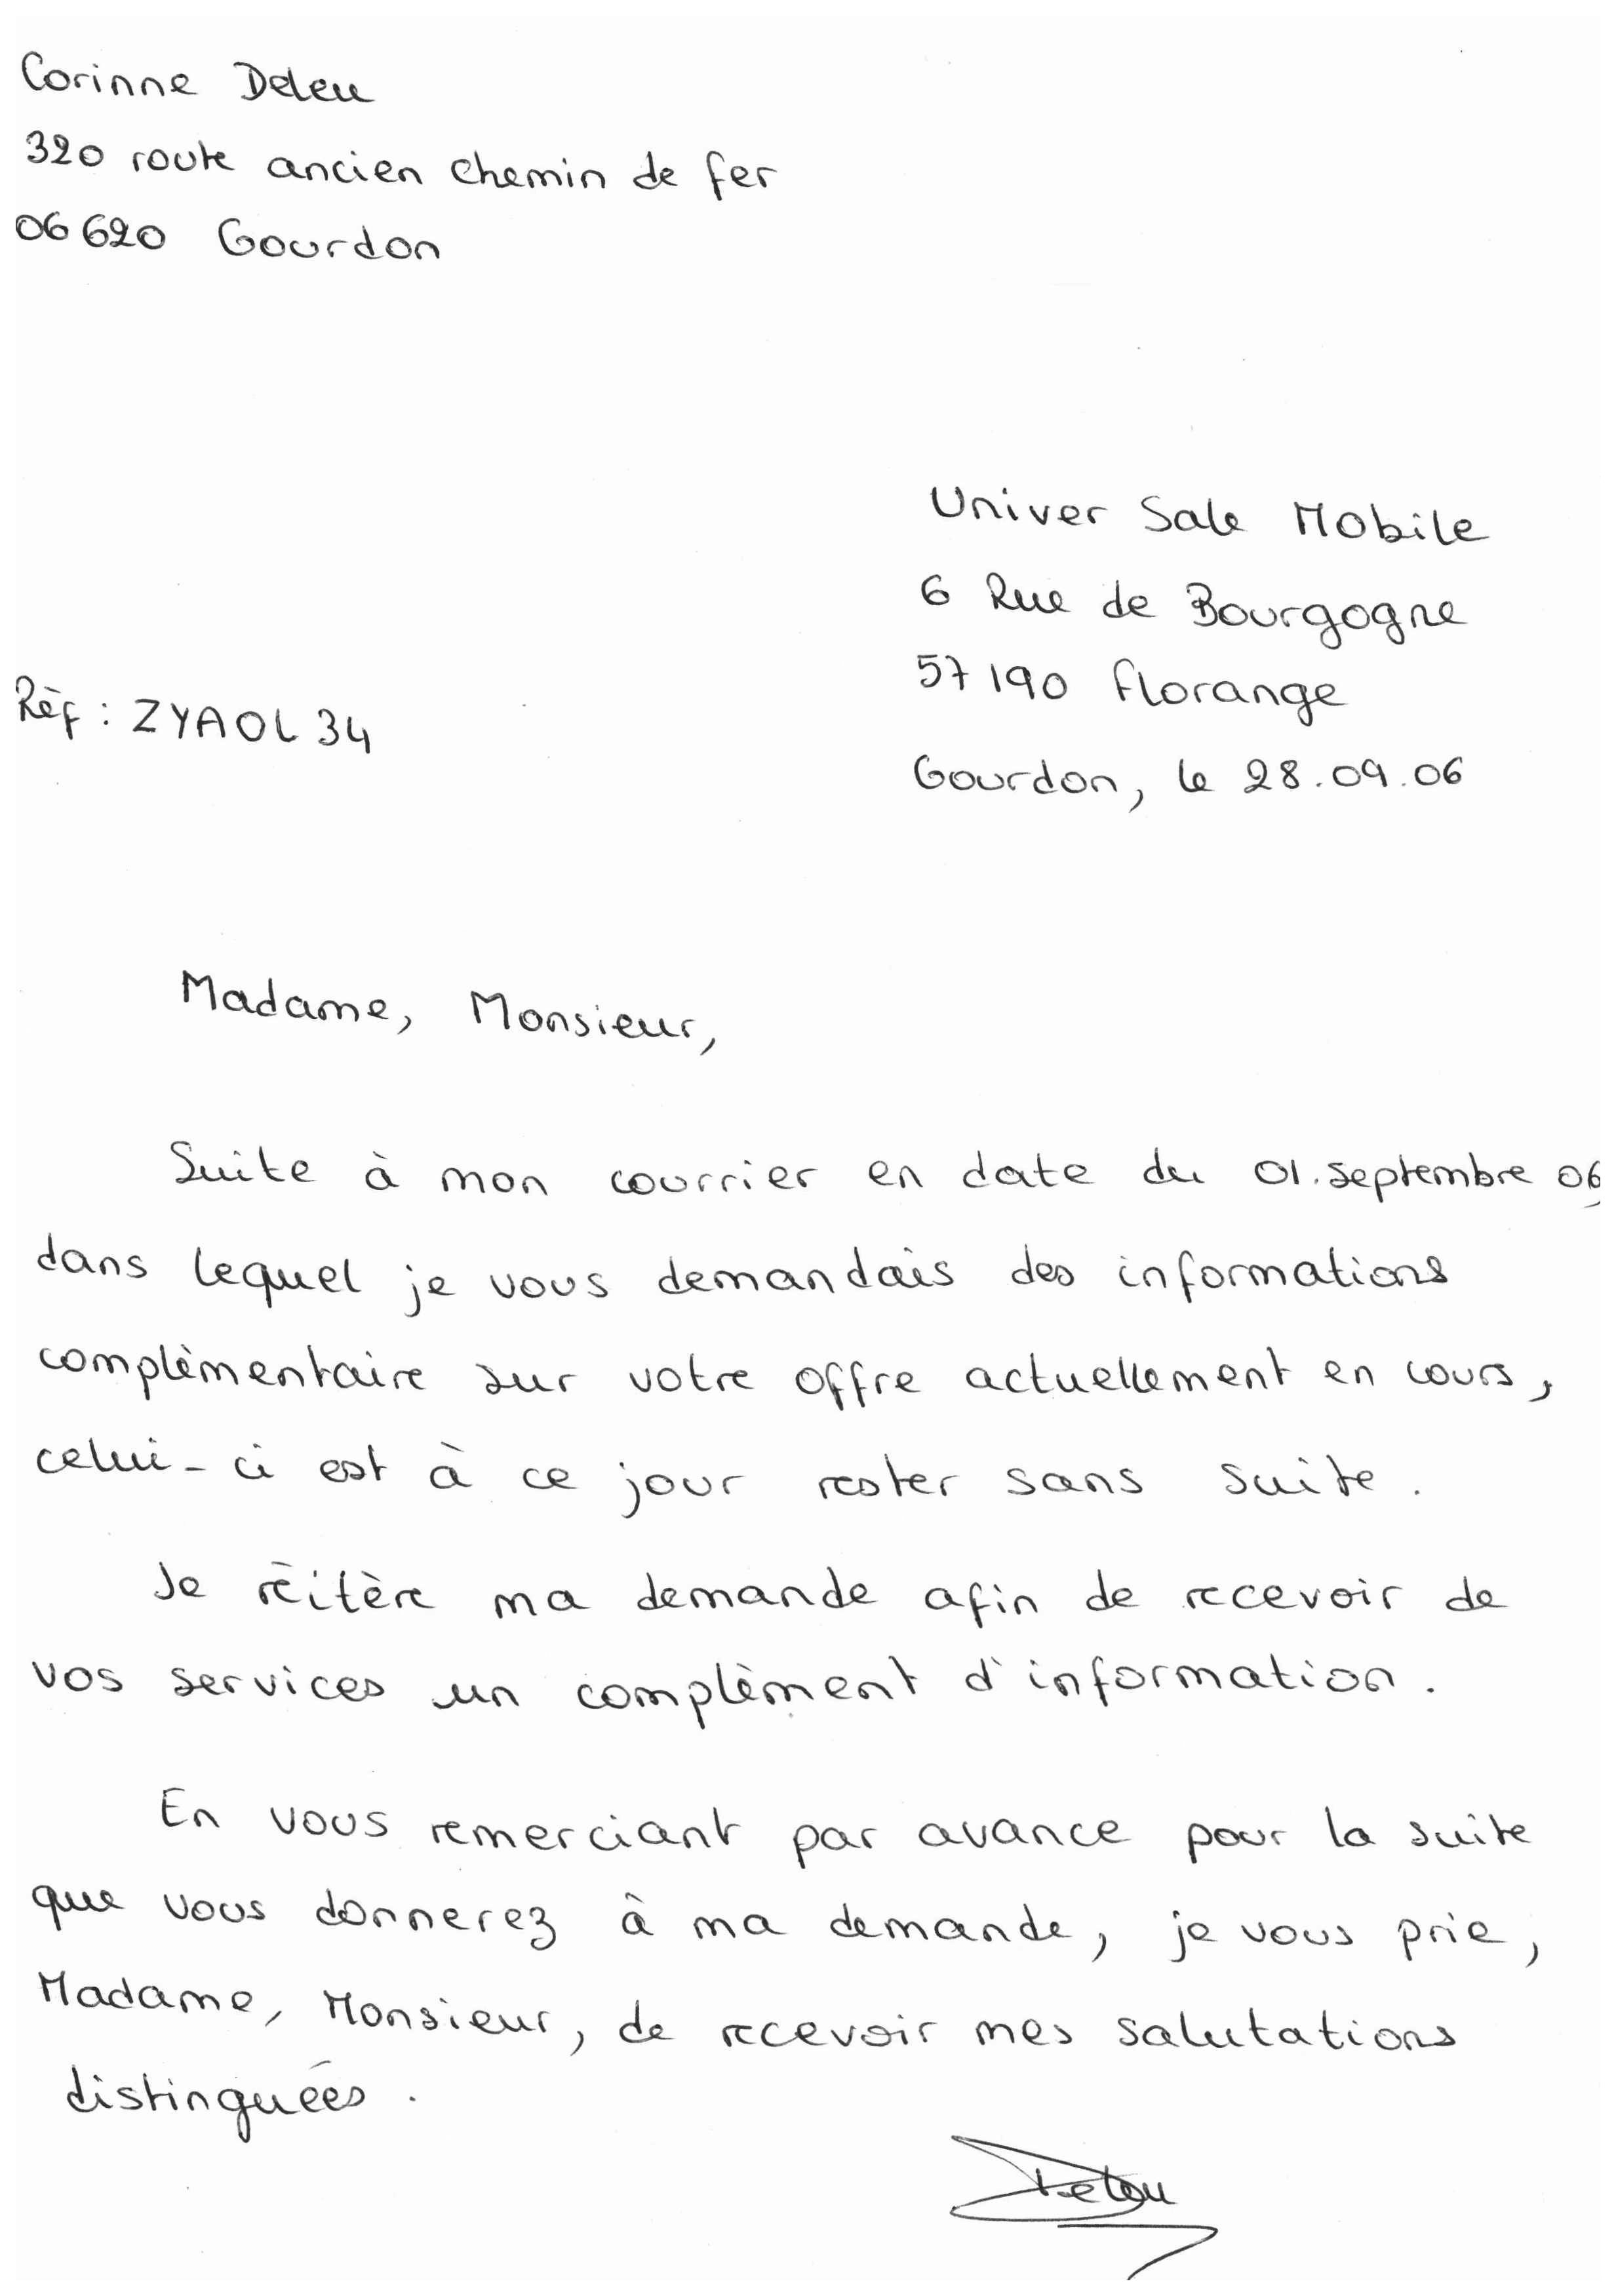 Corinne Deleu
320 route ancien chemin de fer
06620 Gourdon
Univer Sale Mobile
6 Rue de Bourgogne
57190 Florange
Réf : ZYAOL34
Gourdon, le 28.09.06
Madame, Monsieur,
Suite à mon courrier en date du 01.septembre 06
dans lequel je vous demandais des informations
complémentaire sur votre offre actuellement en cours,
celui-ci est à ce jour rester sans suite.
Je réitère ma demande afin de recevoir de
vos services un complément d'information.
En vous remerciant par avance pour la suite
que vous donnerez à ma demande, je vous prie,
Madame, Monsieur, de recevoir mes salutations
distinguées.
Deleu